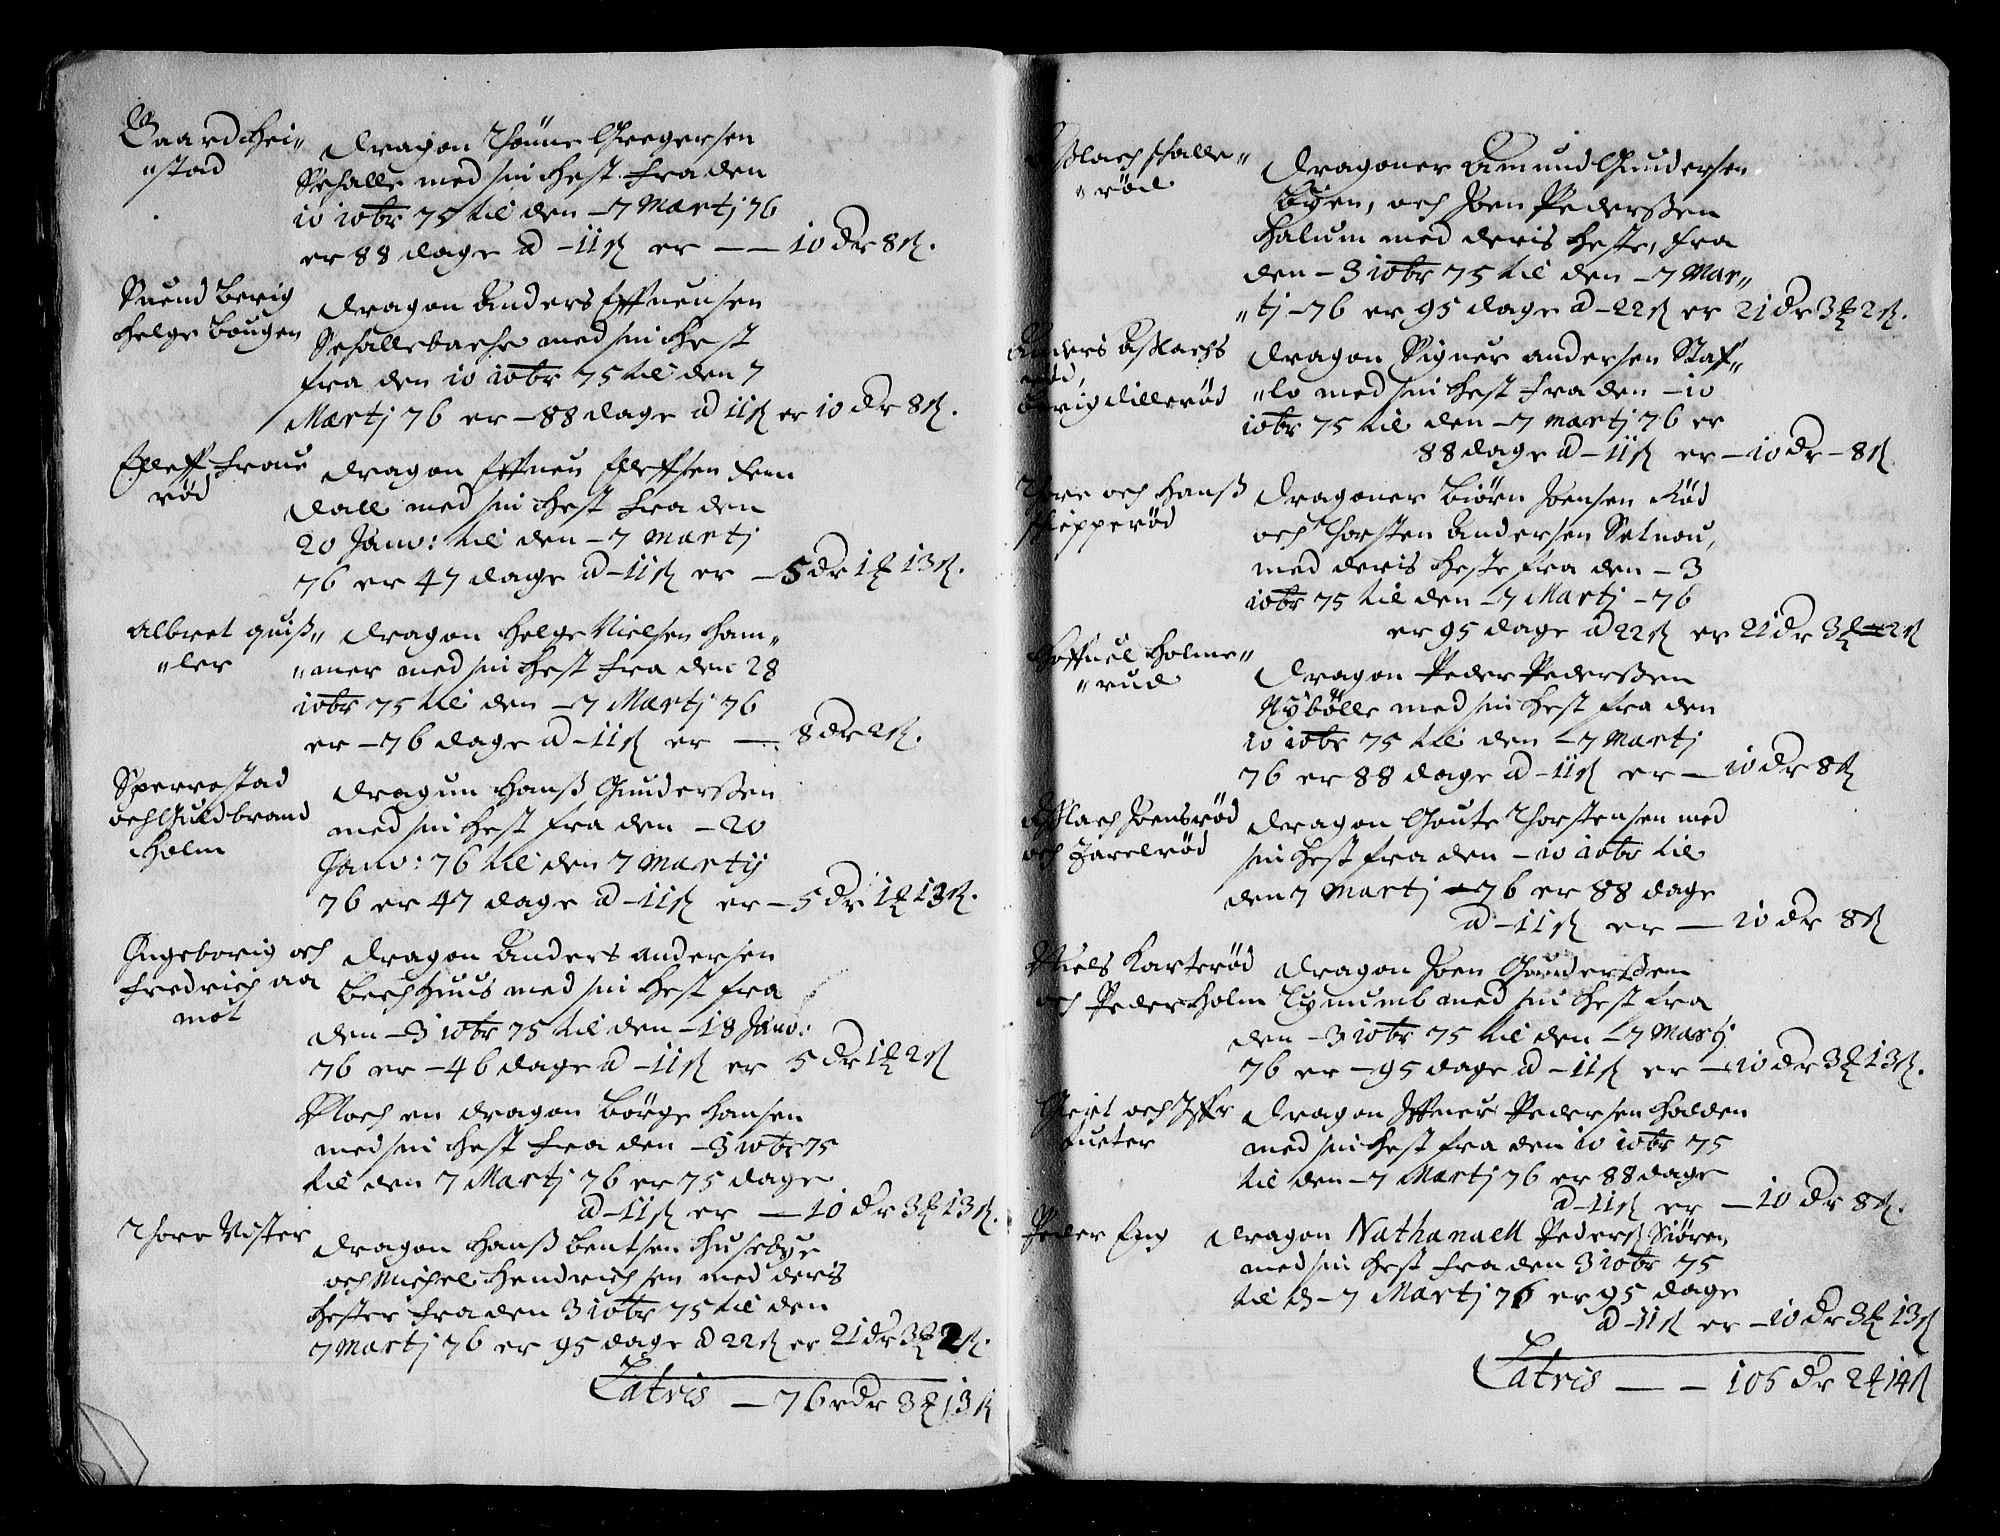 Gaard Hei„
„stad
Dragon Tönne Gregersen
Schalle med sin Hest fra den
10 10br 75 til den -7 Martj 76
er 88 dage a -11 ß er -- 10 Dr 8 ß.
Suend Berig
Helge Bougen
Dragon Anders Effuensen
Schallebache med sin Hest
fra den 10 10br 75 til den 7
Martj 76 er -88 dage a 11 ß er 10 Dr 8 ß.
Elleff Fraue
röd
Dragon Effuen Elleffsen Fem
dall med sin Hest fra den
20 Janv: til den -7 Martj
76 er 47 dage a -11 ß er -5 Dr 1 ꝣ 13 ß.
Albret quiß„
„ler
Dragon Helge Nielsen Ham„
„mer med sin Hest fra den 28
10br 75 til den -7 Martj 76
er -76 dage a -11 ß er — 8 dr 2 ß.
Sperrestad
och Guldbrand
Holm
Dragun Hanß Gunderßen
med sin Hest fra den -20
Janv: 76 til den 7 Martij
76 er 47 dage a -11 ß er -5 Dr 1 ꝣ 13 ß.
Ingeborig och
Fredrich aa
mot
Dragon Anders andersen
Bechhuus med sin Hest fra
den -3 10br 75 til den -18 Janv:
76 er -46 dage a -11 ß er 5 Dr 1 ꝣ 2 ß
Noch en dragon Börge Hansen
med sin Hest fra den -3 10br 75
til den 7 Martj 76 er 75 dage
a -11 ß er — 10 Dr 3 ꝣ 13 ß.
Thore Nister
Dragon Hanß Bentsen Husebye
och Michel Hendrichsen med deris
Hester fra den 3 10br 75 til den
7 Martj 76 er 95 dage a 22 ß er 21 dr 3 ꝣ 2 ß.
Latris — 76 rdr 3 ꝣ 13 ß
Aßlach schalle„
„röd
Dragoner Amund Gundersen
Byen, och Joen Pederßen
Halum med deris Heste, fra
den -3 10br 75 til den -7 Mar„
„tj -76 er 95 dage a -22 ß er 21 Dr 3 ꝣ 2 ß.
Anders Aßlachs
röd,
Berig Lilleröd
Dragon Signer andersen Staf„
„lo med sin Hest fra den -10
10br 75 til den -7 martj 76 er
88 dage a -11 ß er -10 Dr -8 ß
Thore och Hanß
skipperöd
Dragoner Biörn Joensen Röd
och Thorsten Andersen Selnou,
med deris Heste fra den -3
10br 75 til den -7 Martj -76
er 95 dage a 22 ß er 21 Dr 3 ꝣ 2 ß
Hoffuel Holme„
„rud
Dragon Peder Pederßen
Nybölle med sin Hest fra den
10 10br 75 til den -7 Martj
76 er 88 dage a -11 ß er — 10 Dr 8 ß
Aßlach Joensröd
och Jarelröd
Dragon Goute Thorstensen med
sin Hest fra den -10 10br til
den 7 Martj -76 er 88 dage
a -11 ß er — 10 Dr 8 ß
Niels Karteröd
och Peder Holm
Dragon Joen Gunderßen
Lymumb med sin Hest fra
den -3 10br 75 til den -7 Martj
76 er -95 dage a -11 ß er -10 Dr 3 ꝣ 13 ß.
Giert och Iffr
Dragon Iffuer Pedersen Halden
med sin Hest fra den 10 10br 75
til den -7 Martj 76 er 88 dage
a -11 ß er -10 Dr 8 ß.
Peder Eng
Dragon Nathanaell Pederß Siören
med sin Hest fra den 3 10br 75
til d -7 Martj 76 er 95 dage
a -11 ß er -10 Dr 3 ꝣ 13 ß
Latris — - 105 Dr 2 ꝣ 14 ß